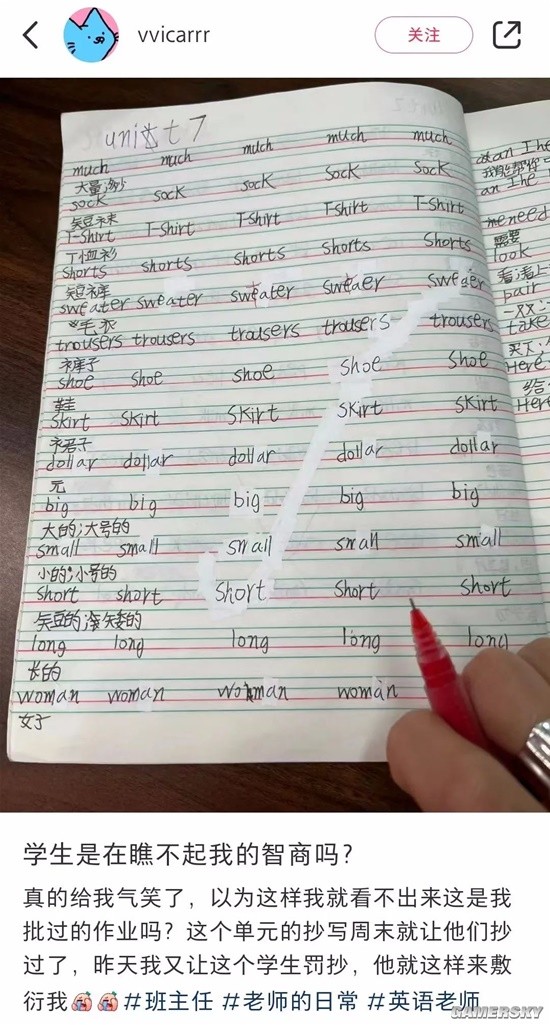 vvicarrr
关注
unit 7
much much much much much
大量
sock sock sock sock sock
T-shirt T-shirt T-shirt T-shirt T-shirt
T恤衫
shorts shorts shorts shorts shorts
短裤
sweater sweater sweater sweaer sweaer
毛衣
trousers trousers trousers trousers trousers
裤子
shoe shoe shoe shoe shoe
鞋
skirt skirt skirt skirt skirt
裙子
dollar dollar dollar dollar dollar
元
big big big big big
大的;大号的
small small small small small
小的;小号的
short short short short short
短的;
long long long long long
长的
woman woman woman woman
女子
an The
me need
需要
look
看;看上
pair
一双;
take
买下;
Here
给
Here
学生是在瞧不起我的智商吗?
真的给我气笑了，以为这样我就看不出来这是我
批过的作业吗？这个单元的抄写周末就让他们抄
过了，昨天我又让这个学生罚抄，他就这样来敷
衍我 #班主任 #老师的日常 #英语老师
GAMERSKY